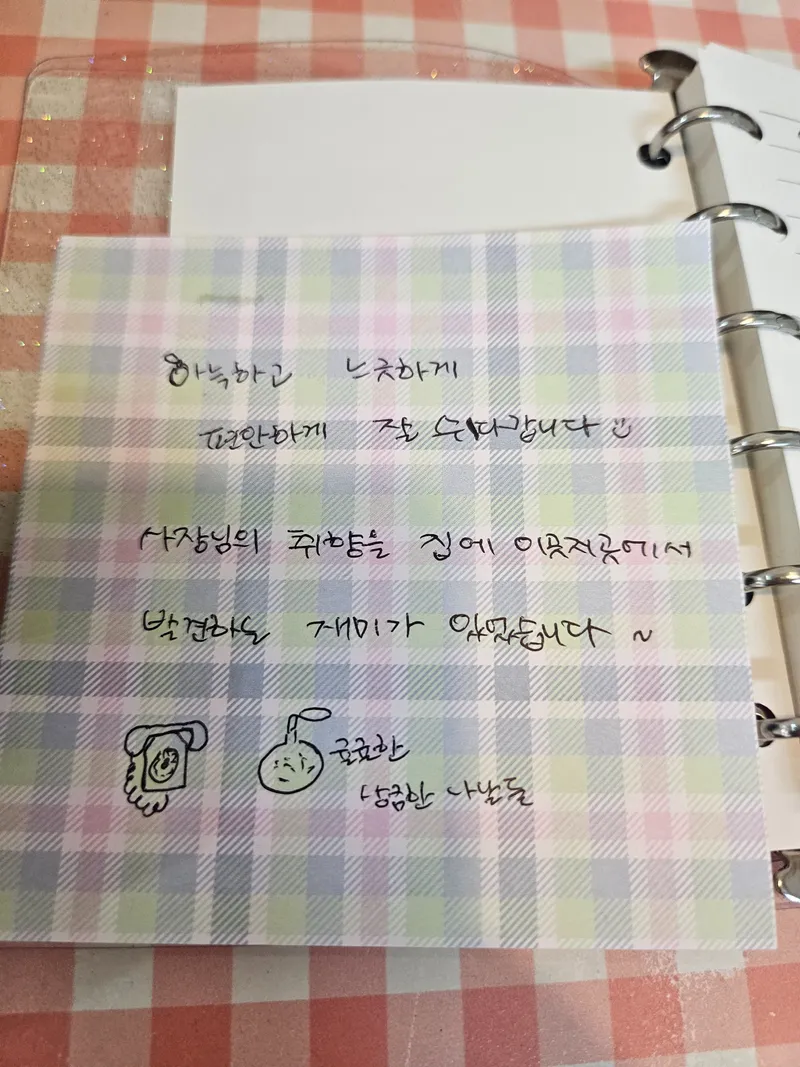 아늑하고 느긋하게
편안하게 잘 쉬다갑니다
사장님의 취향을 집에 이곳저곳에서
발견하는 재미가 있었습니다 ~
상큼한 나날들